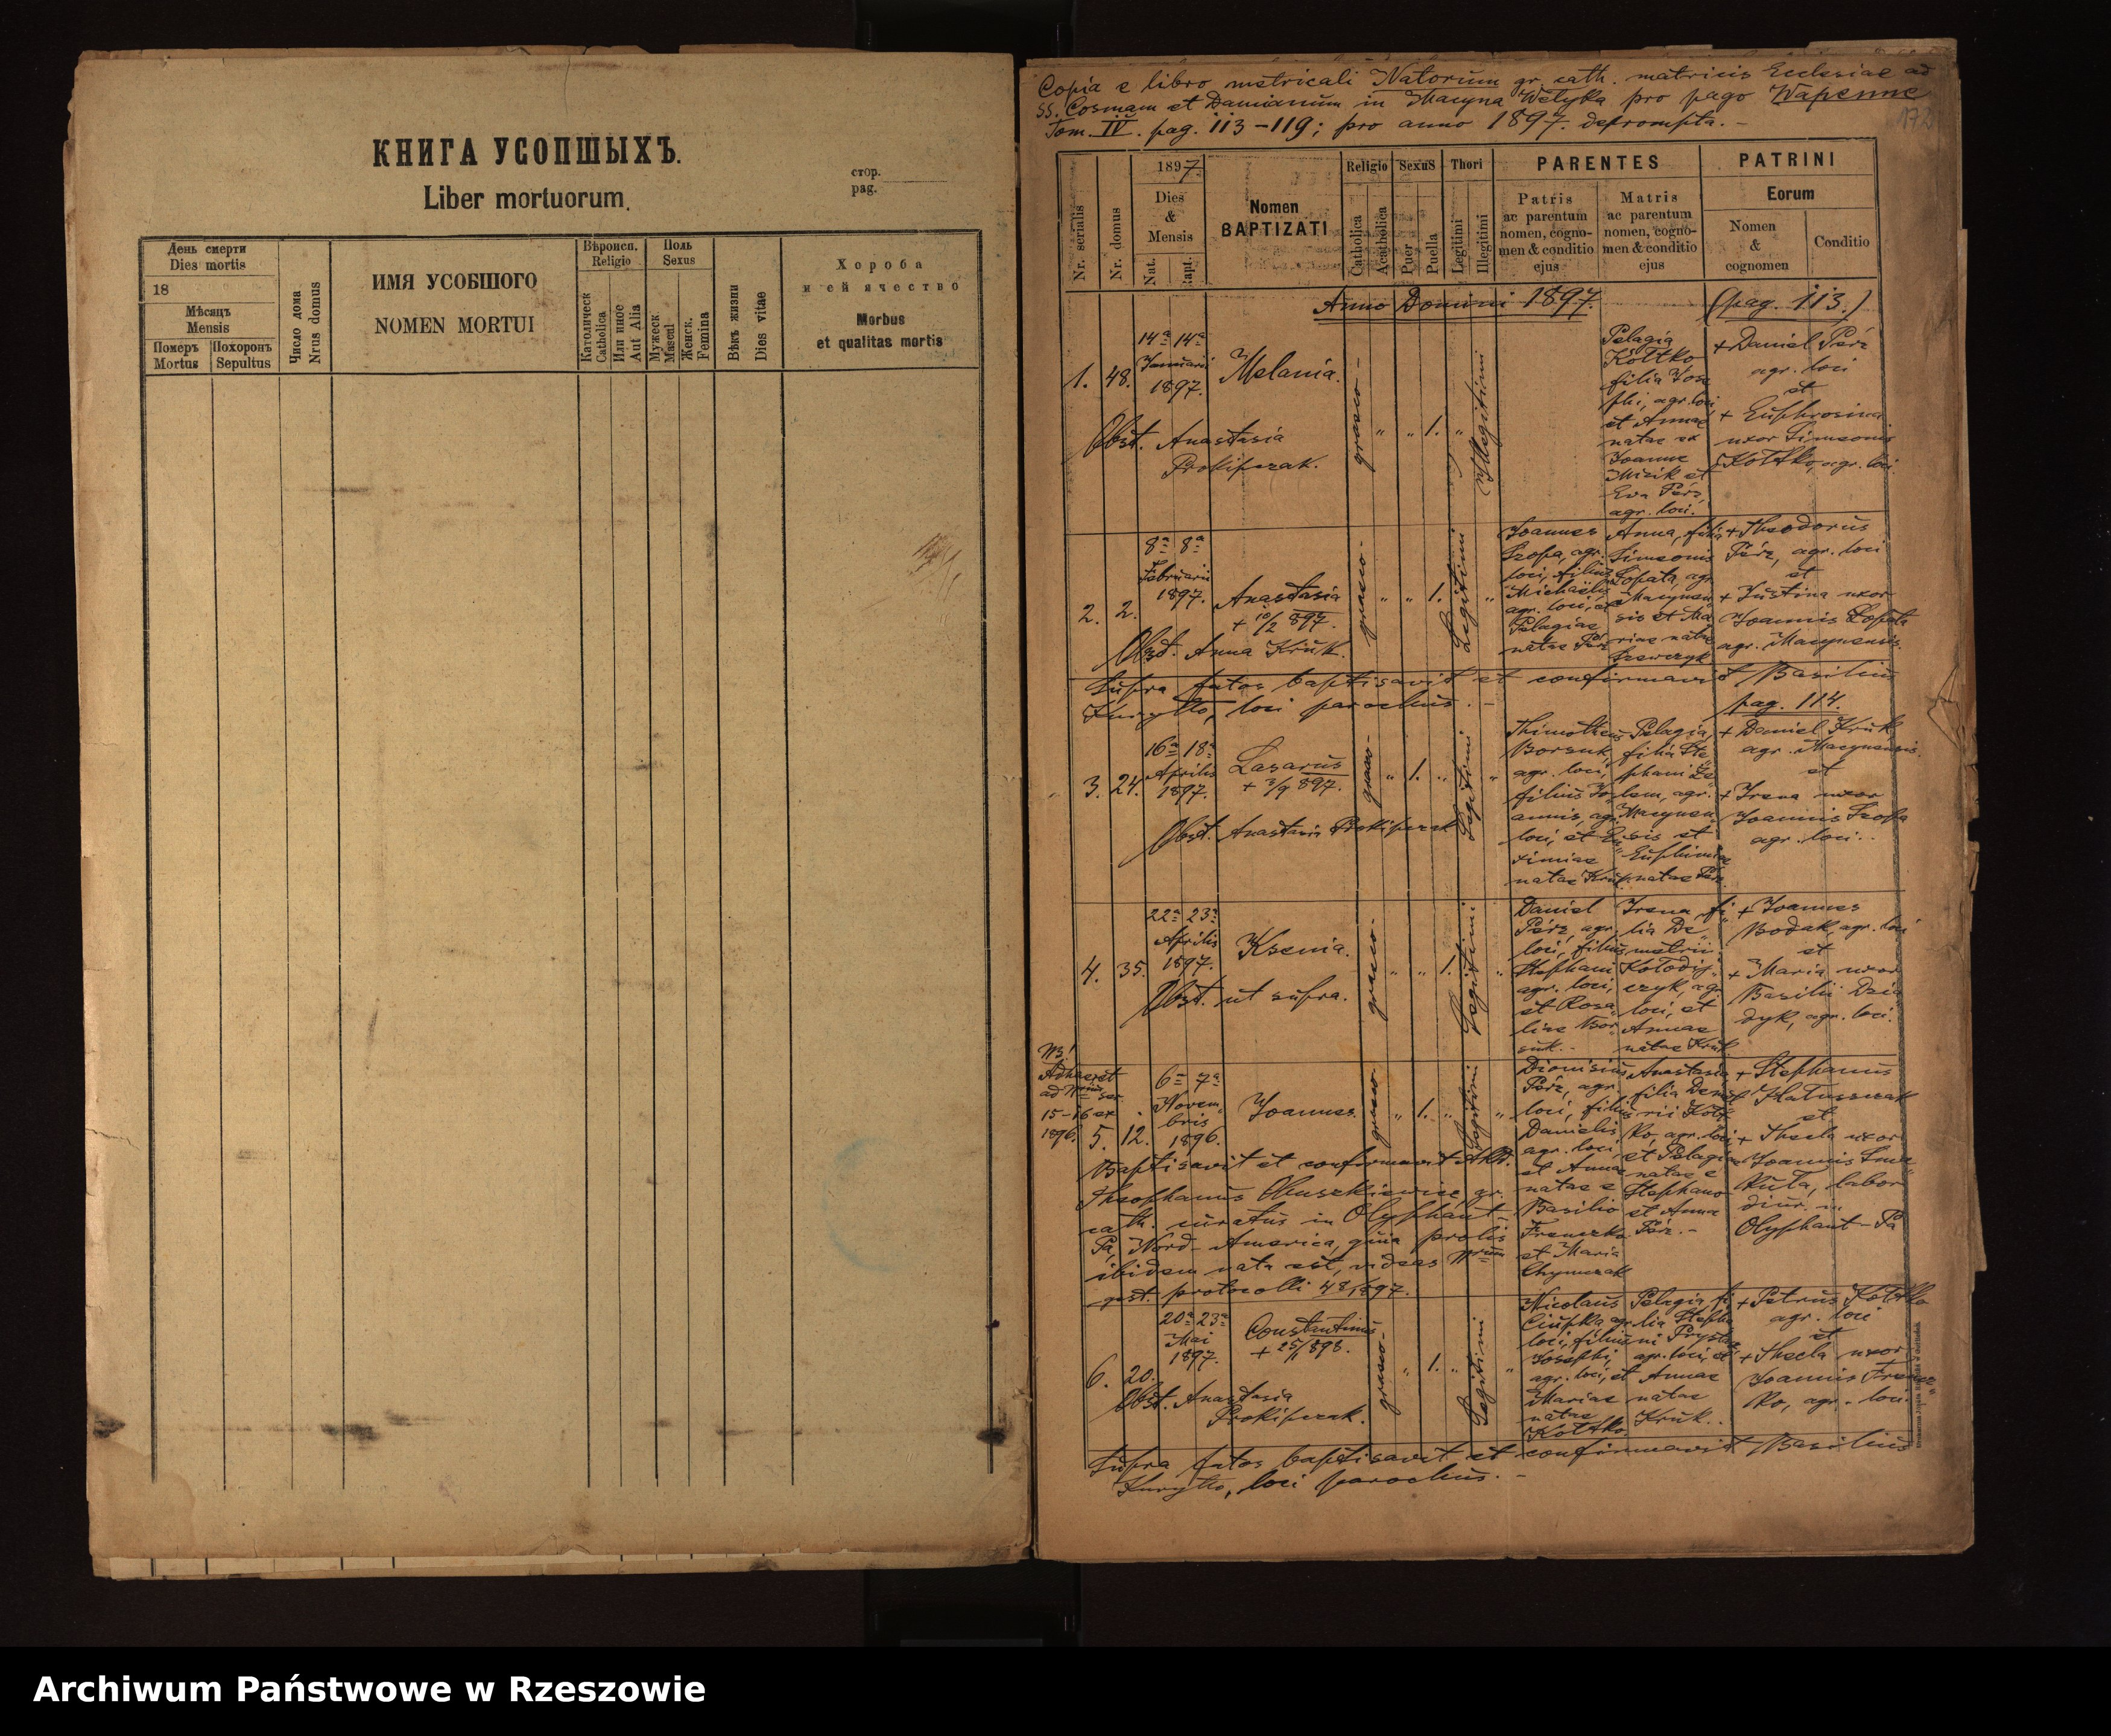 КНИГА УСОПШЫХЪ.
Liber mortuorum.
стор.
pag.
День смерти
Dies mortis
18
Мѣсяцъ
Mensis
Померъ
Mortus
Похоронъ
Sepultus
Число дома
Nrus domus
ИМЯ УСОБШОГО
NOMEN MORTUI
Вѣроисп.
Religio
Католическ
Catholica
Или иное
Aut Alia
Поль
Sexus
Мужеск
Mascul
Женск.
Femina
Вѣкъ жизни
Dies vitae
Хороба
и ей ячество
Morbus
et qualitas mortis
Copia e libro metricali Natorum gr. cath. matricis Ecclesiae ad
SS. Cosmam et Damianum in Macyna Wełyka pro pago Wapenne
Tom. IV. pag. 113-119; pro anno 1897. deprompta. -
172
Nr. serialis
Nr. domus
1897.
Dies
&
Mensis
Nat.
Bapt.
Nomen
BAPTIZATI
Religio
Catholica
Acatholica
Sexus
Puer
Puella
Thori
Legitimi
Illegitimi
PARENTES
Patris
ac parentum
nomen, cogno-
men & conditio
ejus
Matris
ac parentum
nomen, cogno-
men & conditio
ejus
PATRINI
Eorum
Nomen
&
cognomen
Conditio
Anno Domini 1897.
(pag. 113.)
1. 48.
14a 14a
Januarii
1897.
Melania.
Obst. Anastasia
Prokipczak.
graeco-
" " 1. "
Illegitimi
Pelagia
Kotłko
filia Jose
phi, agr. loci,
et Annae
natae ex
Joanne
Micik et
Eva Pérz,
agr. loci.
+ Daniel Pérz
agr. loci
et
+ Euphrosina
uxor Simeonis
Kotłko, agr. loci.
2. 2.
8a 8a
Februarii
1897.
Anastasia
+ 10/2 897.
Obst. Anna Kruk.
graeco-
" " 1. "
Legitimi
Joannes
agr.
loci, filius
Michaëlis,
agr. loci, et
Pelagiae
natae Pérz
Anna, filia
Simeonis
Łopata, agr.
Macynen
sis et Ma
riae natae
Szewczyk
+ Theodorus
Pérz, agr. loci
et
+ Justina uxor
Joannis Łopata
agr. Macynensis.
Supra fatos baptisavit et confirmavit Basilius
Kuryłło, loci parochus. -
pag. 114.
3. 24.
16a 18a
Aprilis
1897.
Lasarus
+ 3/9 897.
Obst. Anastasia Prokipczak
graeco-
" 1. " "
Legitimi
Thimotheus
Borsuk,
agr. loci,
filius Jo
annis, agr.
loci, et Eu
ximiae
natae Kruk
Pelagia,
filia Ste
phani Ze
lem, agr.
Macynen
sis et
Euphimiae
natae Pérz.
+ Daniel Kruk
agr. Macynensis
et
+ Irena uxor
Joannis
agr. loci.
4. 35.
22a 23a
Aprilis
1897.
Ksenia.
Obst. ut supra.
graeco-
" " 1. "
Legitimi
Daniel
Pérz, agr.
loci, filius
Stephani
agr. loci,
et Rosa
liae Bor
suk. -
Irena, fi
lia De
metrii
Kołodij
czyk, agr.
loci, et
Annae
natae Kruk
+ Joannes
Bodak, agr. loci
et
+ Maria uxor
Basilii Dzia
dyk, agr. loci.
NB!
Adhaeret
ad Nrum ser.
15-16 ex
1896.
5. 12.
6a 7a
Novem
bris
1896.
Joannes.
graeco
" 1. " "
Legitimi
Dionisius
Pérz, agr.
loci, filius
Danielis,
agr. loci,
et Annae
natae e
Basilio
Frenczko
et Maria
Chymczak
Anastasia
filia Deme
trii Kotł
ko, agr. loci
et Pelagiae
natae e
Stephano
et Anna
Pérz. -
+ Stephanus
et
+ Thecla uxor
Joannis
labor
diur. in
Olyphant-Pa
Baptisavit et confirmavit
Theophanus Obuszkiewicz, gr.
cath. curatus in Olyphant,
Pa, Nord-America, quia prolis
ibidem nata est, videas Nrum
gest. protocolli 48/897.
6. 20.
20a 23a
Mai
1897.
Constantinus
+ 25/1 898.
Obst. Anastasia
Prokipczak.
graeco-
" 1. " "
Legitimi
Nicolaus
Ciupka, agr.
loci, filius
Josephi,
agr. loci, et
Mariae
natae
Kotłko
Pelagia fi
lia Stepha
ni
agr. loci, et
Annae
natae
Kruk.
+ Petrus Kotłko
agr. loci
et
+ Thecla uxor
Joannis Frencz
ko, agr. loci.
Supra fatos baptisavit et confirmavit Basilius
Kuryłło, loci parochus. -
Archiwum Państwowe w Rzeszowie